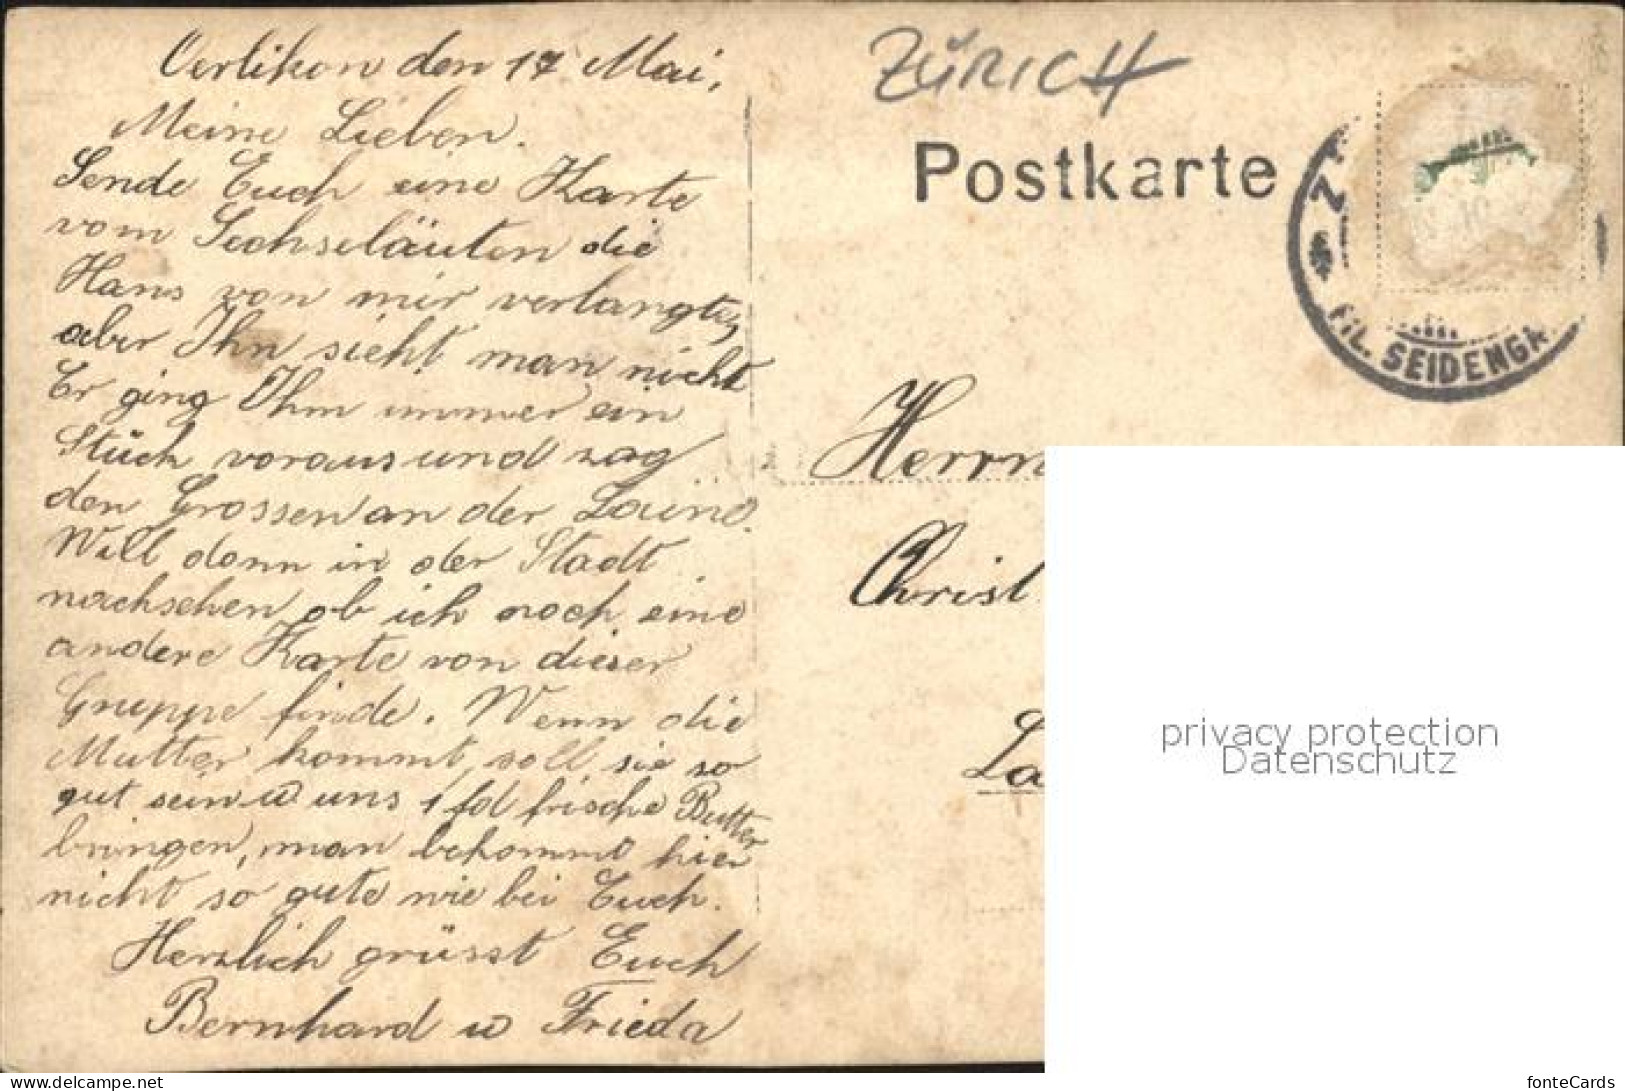 Oerlikon den 17 Mai,
Meine Lieben.
Sende Euch eine Karte
vom Sechseläuten die
Hans von mir verlangte,
aber Ihn sieht man nicht
Er ging Ihm immer ein
Stück voraus und zog
den Grossen an der Leine.
Will dann in der Stadt
nachsehen ob ich noch eine
andere Karte von dieser
Gruppe finde. Wenn die
Mutter kommt, soll sie so
gut sein u uns 1 fd frische Butter
bringen, man bekommt hier
nicht so gute wie bei Euch.
Herzlich grüsst Euch
Bernhard u Frieda
ZÜRICH
Postkarte
FIL. SEIDENGA
Herrn
Christ
La
privacy protection
Datenschutz
delcampe.net
fonteCards